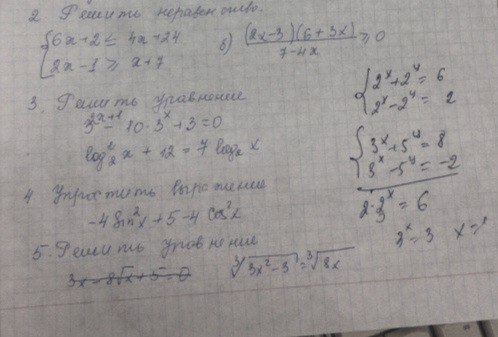 2. Решить неравенство.
{6x+2 ≤ 4x+24
2x-1 ≥ x+7
б) (2x-3)(6+3x)/7-4x ≥ 0
3. Решить уравнение
3^2x+1 - 10·3^x + 3 = 0
log²₂ x + 12 = 7 log₂ x
4 Упростить выражение
-4 sin²x + 5 - 4 cos²x
5. Решить уравнение
3x - 8√x + 5 = 0
∛3x²-3 = ∛8x
{2^x + 2^y = 6
2^x - 2^y = 2
{3^x + 5^y = 8
3^x - 5^y = -2
2·3^x = 6
3^x = 3 x=1